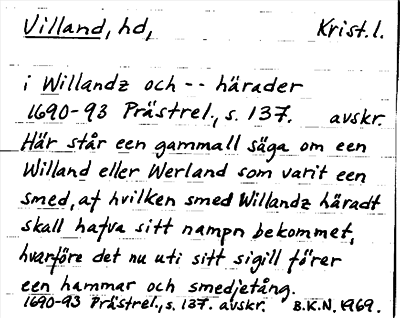 Villand, hd, Krist. l.
i Willandz och -- härader
1690-93 Prästrel., s. 137. avskr.
Här står een gammall säga om een
Willand eller Werland som varit een
smed, af hvilken smed Willandz häradt
skall hafva sitt nampn bekommet,
hvarföre det nu uti sitt sigill förer
een hammar och smedjetång.
1690-93 Prästrel., s. 137. avskr. B.K.N. 1969.